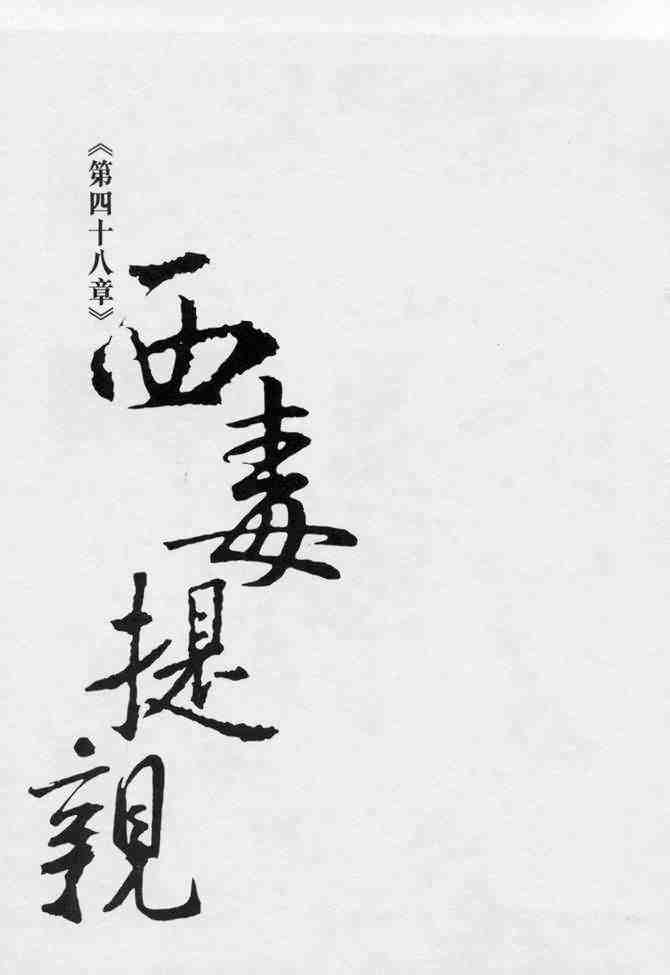 《第四十八章》
西毒提親